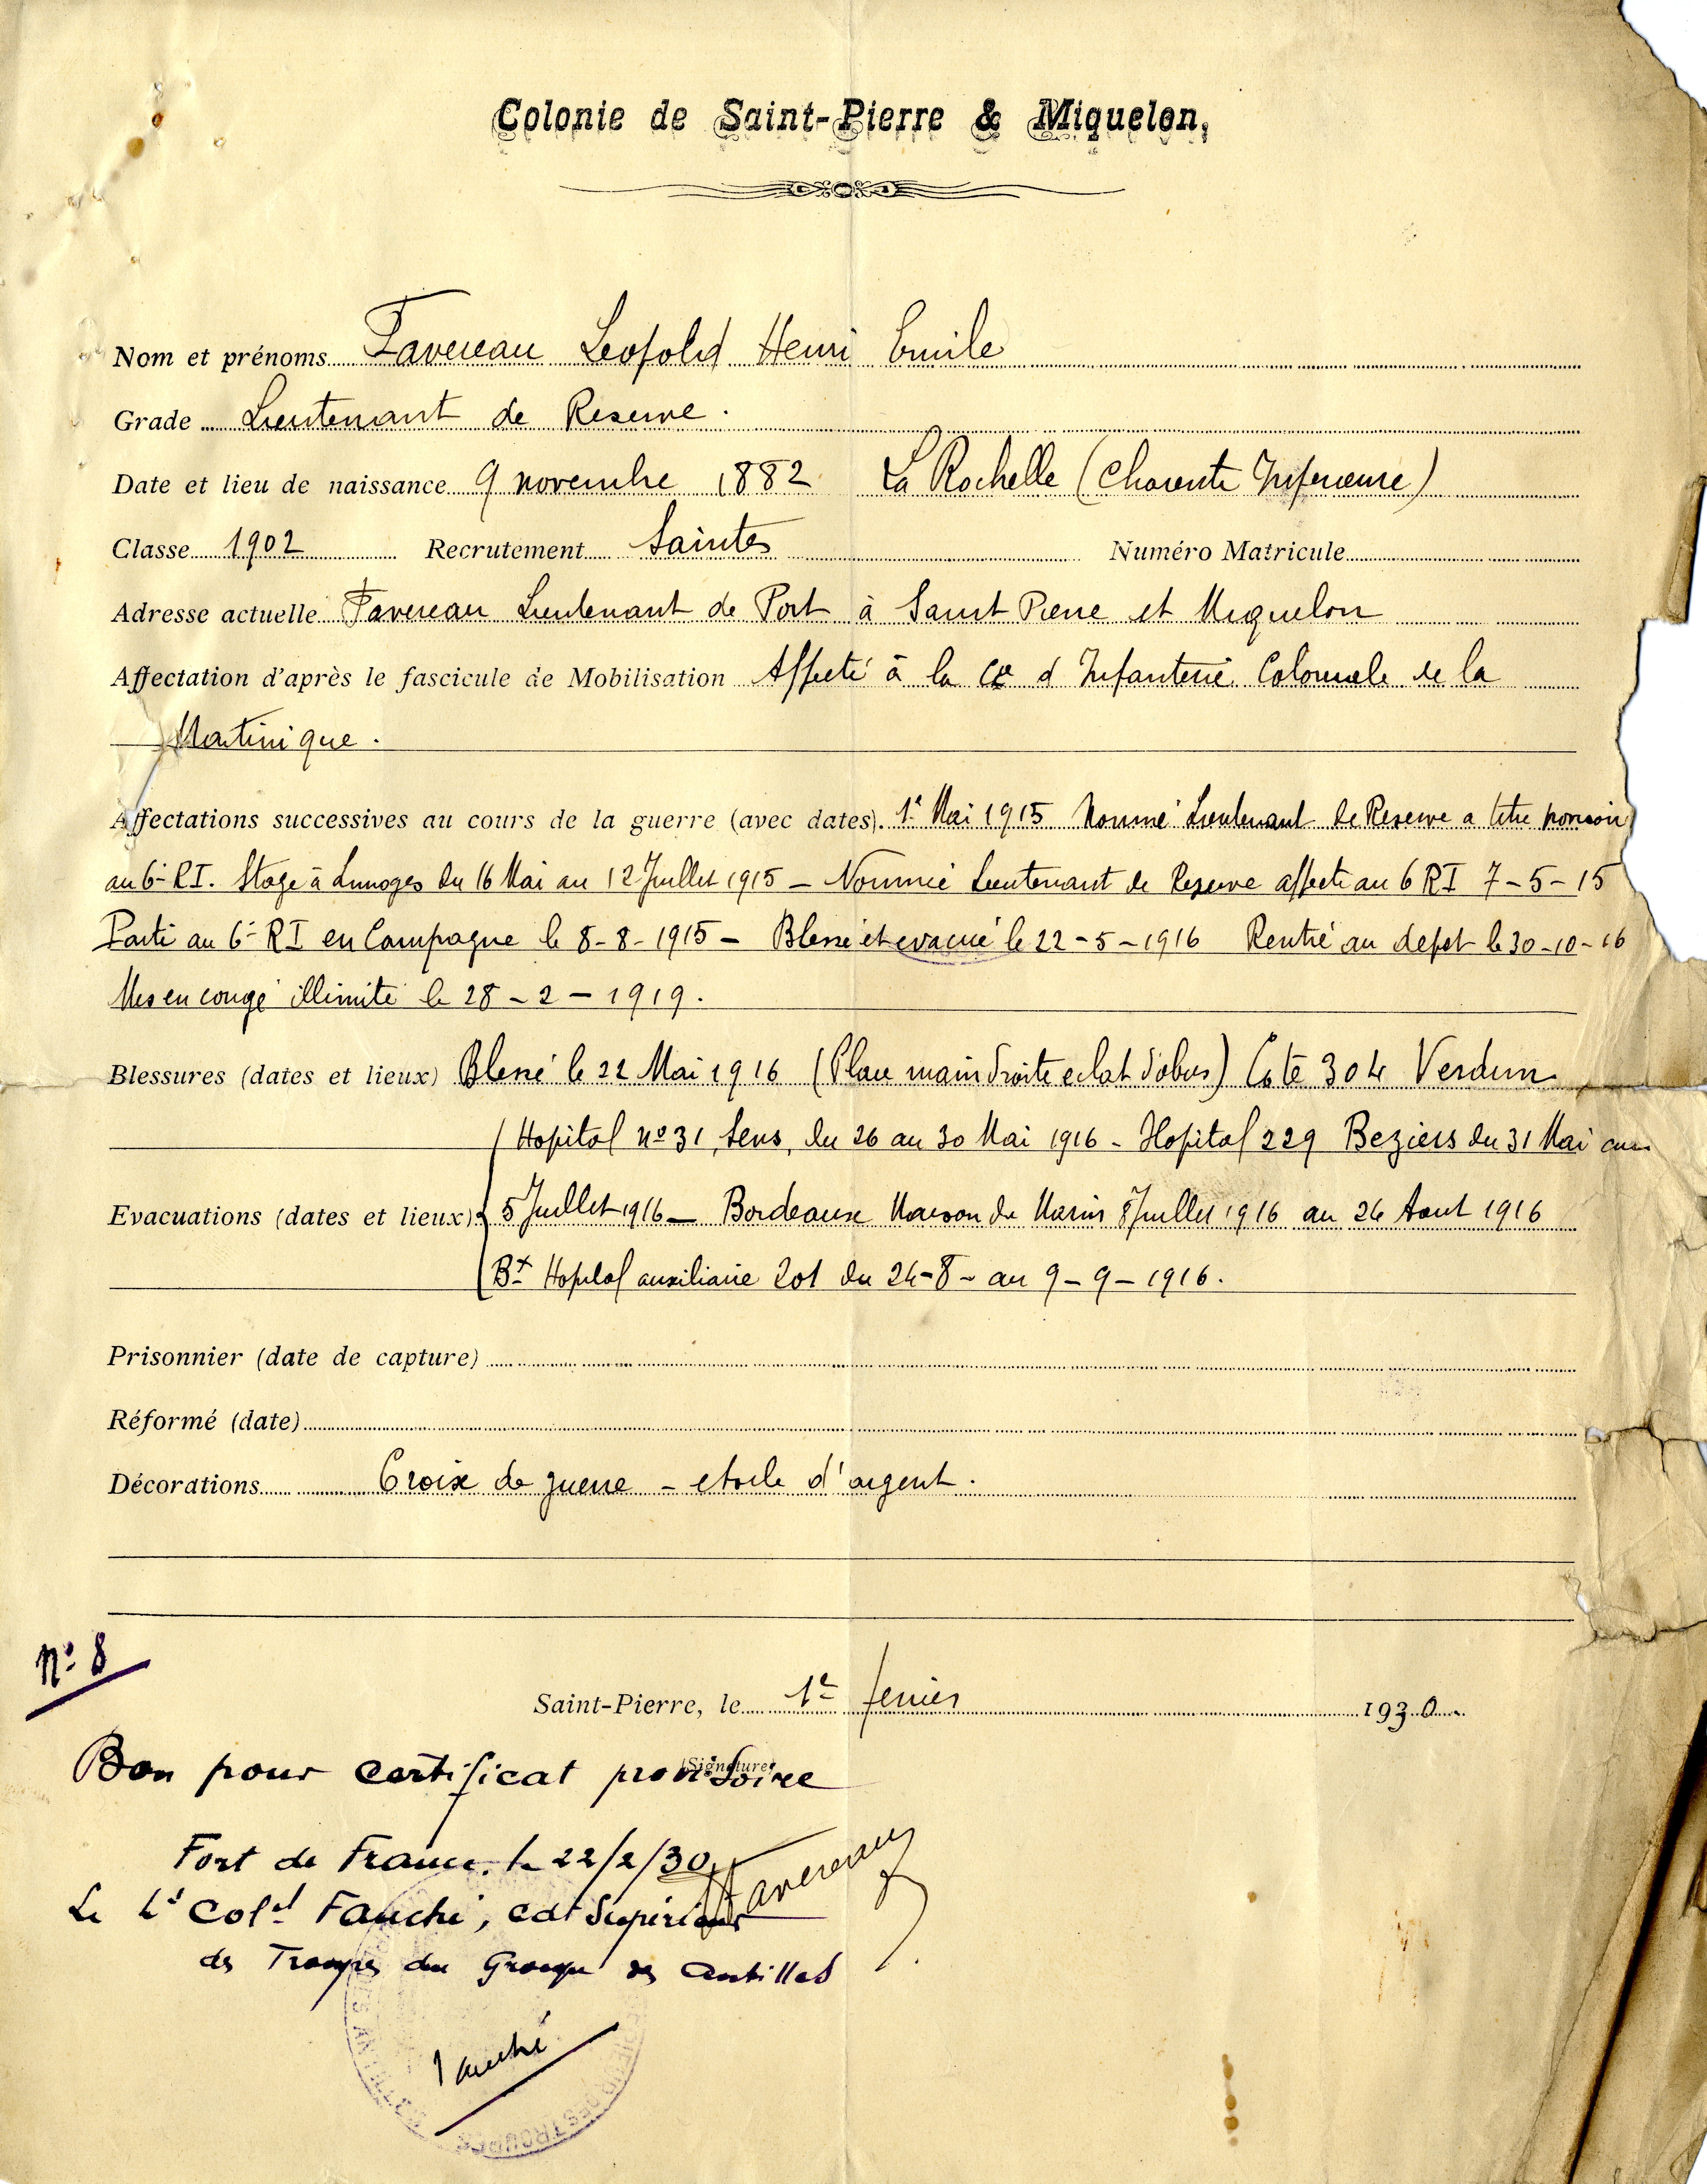 Colonie de Saint-Pierre & Miquelon.
Nom et prénoms Favereau Leopold Henri Emile
Grade Lieutenant de Reserve.
Date et lieu de naissance 9 novembre 1882 La Rochelle (Charente Inferieure)
Classe 1902 Recrutement Saintes Numéro Matricule
Adresse actuelle Favereau Lieutenant de Port à Saint Pierre et Miquelon
Affectation d'après le fascicule de Mobilisation Affecté à la Cie d'Infanterie Coloniale de la
Martinique.
Affectations successives au cours de la guerre (avec dates). 1er Mai 1915 Nommé Lieutenant de Reserve a titre
au 6e RI. Stage à Limoges du 16 Mai au 12 Juillet 1915 — Nommé Lieutenant de Reserve affecté au 6 RI 7-5-15
Parti au 6e RI en Campagne le 8-8-1915 — Blessé et evacué le 22-5-1916 Rentré au depot le 30-10-16
Mis en congé illimité le 28-2-1919.
Blessures (dates et lieux) Blessé le 22 Mai 1916 (Plaie main droite eclat d'obus) Cote 304 Verdun
Hopital no 31, Sens, du 26 au 30 Mai 1916 - Hopital 229 Beziers du 31 Mai au
Evacuations (dates et lieux) 5 Juillet 1916 — Bordeaux Maison du Marin 8 Juillet 1916 au 24 Aout 1916
Bx Hopital auxiliaire 201 du 24-8- au 9-9-1916.
Prisonnier (date de capture)
Réformé (date)
Décorations Croix de guerre - etoile d'argent.
No 8
Saint-Pierre, le 1er fevrier 1930.
(Signature)
Bon pour certificat provisoire
Fort de France, le 22/2/30
Favereau
Le Lt Colel Fauché, Cdt Supérieur
des Troupes du Groupe des Antilles
Fauché
DES TROUPES
ANTILLES